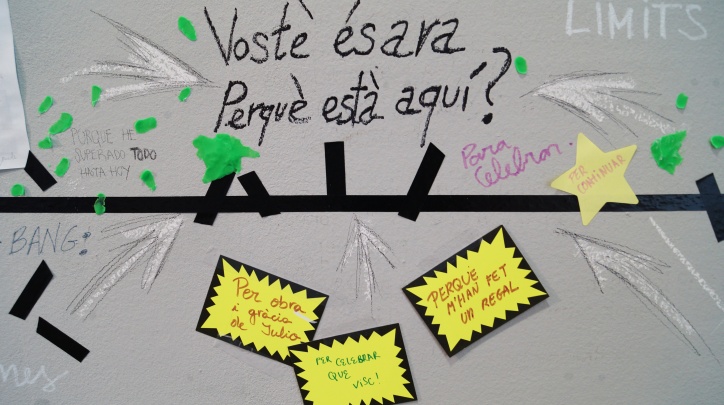 LIMITS
Vostè és ara
Perquè està aquí?
PORQUE HE
SUPERADO TODO
HASTA HOY
Para
Celebrar.
PER
CONTINUAR
BANG!
Per obra
i gràcia
de Julia
PERQUE
M'HAN FET
UN REGAL
PER CELEBRAR
QUE
VISC!
nes